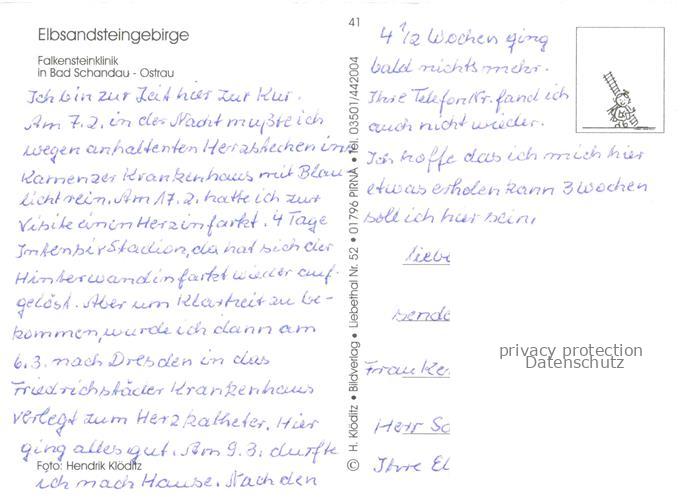 Elbsandsteingebirge
Falkensteinklinik
in Bad Schandau - Ostrau
Ich bin zur Zeit hier zur Kur.
Am 7.2. in der Nacht mußte ich
wegen anhaltenten Herzstechen ins
Kamenzer Krankenhaus mit Blau-
licht rein. Am 17.2. hatte ich zur
Visite einen Herzinfarkt. 4 Tage
Intensiv Stadion, da hat sich der
Hinterwandinfarkt wieder auf-
gelöst. Aber um Klarheit zu be-
kommen, wurde ich dann am
6.3. nach Dresden in das
Friedrichstäder Krankenhaus
verlegt zum Herzkatheter. Hier
ging alles gut. Am 9.3. durfte
Foto: Hendrik Klöditz
ich nach Hause. Nach den
41
© H. Klöditz • Bildverlag • Liebethal Nr. 52 • 01796 PIRNA • Tel. 03501/442004
4 1/2 Wochen ging
bald nichts mehr.
Ihre Telefon Nr. fand ich
auch nicht wieder.
Ich hoffe das ich mich hier
etwas erholen kann 3 Wochen
soll ich hier sein.
liebe
sende
Frau Ke
Herr Sc
Ihre El
privacy protection
Datenschutz